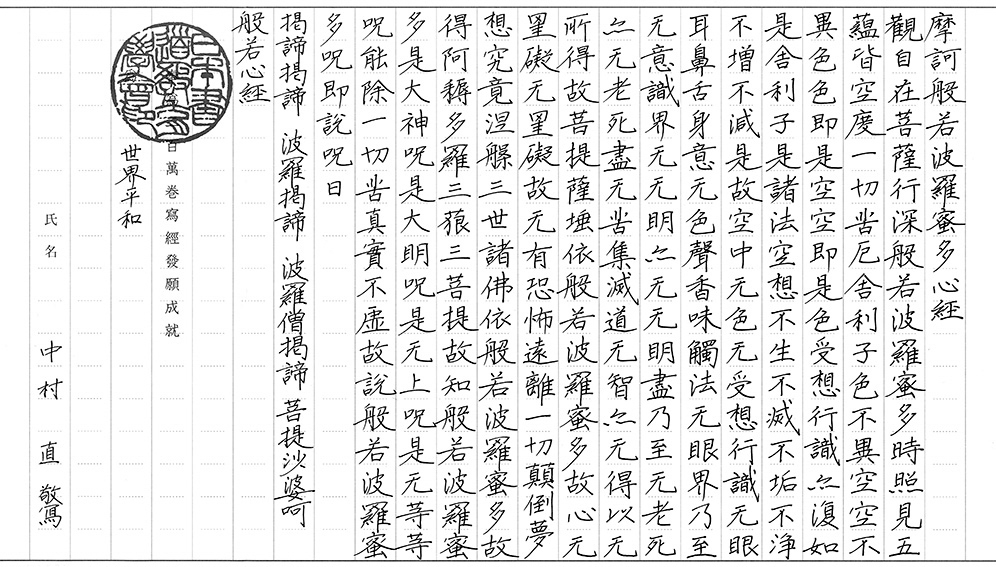 摩訶般若波羅蜜多心經
觀自在菩薩行深般若波羅蜜多時照見五
蘊皆空度一切苦厄舍利子色不異空空不
異色色即是空空即是色受想行識亦復如
是舍利子是諸法空想不生不滅不垢不浄
不增不減是故空中无色无受想行識无眼
耳鼻舌身意无色聲香味觸法无眼界乃至
无意識界无无明亦无无明盡乃至无老死
亦无老死盡无苦集滅道无智亦无得以无
所得故菩提薩埵依般若波羅蜜多故心无
罣礙无罣礙故无有恐怖遠離一切顛倒夢
想究竟涅槃三世諸佛依般若波羅蜜多故
得阿耨多羅三藐三菩提故知般若波羅蜜
多是大神呪是大明呪是无上呪是无等等
呪能除一切苦真實不虚故說般若波羅蜜
多呪即說呪曰
揭諦揭諦 波羅揭諦 波羅僧揭諦 菩提沙婆呵
般若心經
百萬巻寫經發願成就
世界平和
氏名
中村 直 敬寫